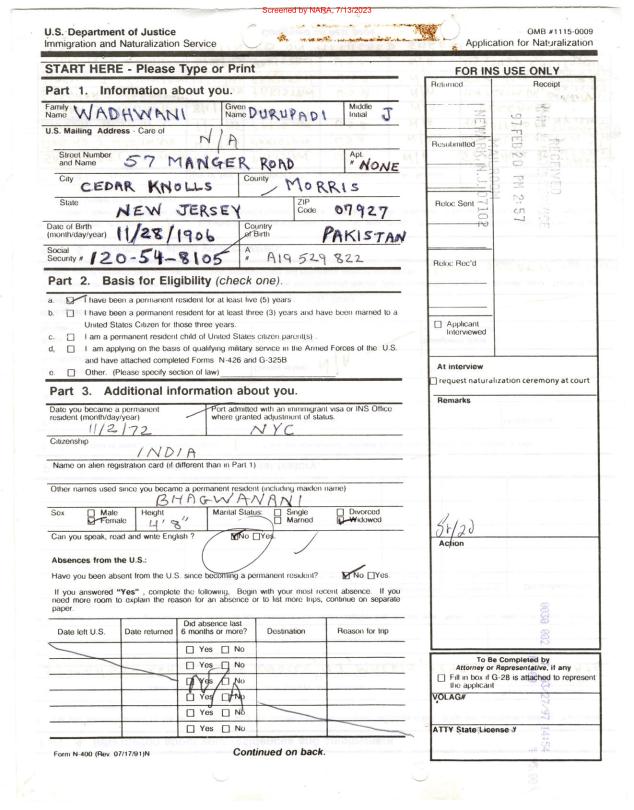 Screened by NARA, 7/13/2023
U.S. Department of Justice
Immigration and Naturalization Service
OMB #1115-0009
Application for Naturalization
START HERE - Please Type or Print
Part 1. Information about you.
Family Name WADHWANI Given Name DURUPADI Middle Initial J
U.S. Mailing Address - Care of
N/A
Street Number and Name 57 MANGER ROAD Apt. # NONE
City CEDAR KNOLLS County MORRIS
State NEW JERSEY ZIP Code 07927
Date of Birth (month/day/year) 11/28/1906 Country of Birth PAKISTAN
Social Security # 120-54-8105 A # A19 529 822
Part 2. Basis for Eligibility (check one).
a. I have been a permanent resident for at least five (5) years
b. I have been a permanent resident for at least three (3) years and have been married to a
United States Citizen for those three years.
c. I am a permanent resident child of United States citizen parent(s).
d. I am applying on the basis of qualifying military service in the Armed Forces of the U.S.
and have attached completed Forms N-426 and G-325B
e. Other. (Please specify section of law)
Part 3. Additional information about you.
Date you became a permanent resident (month/day/year)
11/2/72
Port admitted with an immigrant visa or INS Office
where granted adjustment of status.
NYC
Citizenship
INDIA
Name on alien registration card (if different than in Part 1)
Other names used since you became a permanent resident (including maiden name)
BHAGWANANI
Sex Male Female Height 4' 8" Marital Status: Single Married Divorced Widowed
Can you speak, read and write English ? No Yes.
Absences from the U.S.:
Have you been absent from the U.S. since becoming a permanent resident? No Yes.
If you answered "Yes" , complete the following, Begin with your most recent absence. If you
need more room to explain the reason for an absence or to list more trips, continue on separate
paper.
Date left U.S. Date returned Did absence last 6 months or more? Destination Reason for trip
Yes No
Yes No
Yes No
Yes No
Yes No
Yes No
N/A
Form N-400 (Rev. 07/17/91)N
Continued on back.
FOR INS USE ONLY
Returned Receipt
Resubmitted
Reloc Sent
Reloc Rec'd
RECEIVED
97 FEB 20 PM 2:57
NEWARK, N.J. 07102
Applicant Interviewed
At interview
request naturalization ceremony at court
Remarks
Action
To Be Completed by
Attorney or Representative, if any
Fill in box if G-28 is attached to represent
the applicant
VOLAG#
ATTY State License #